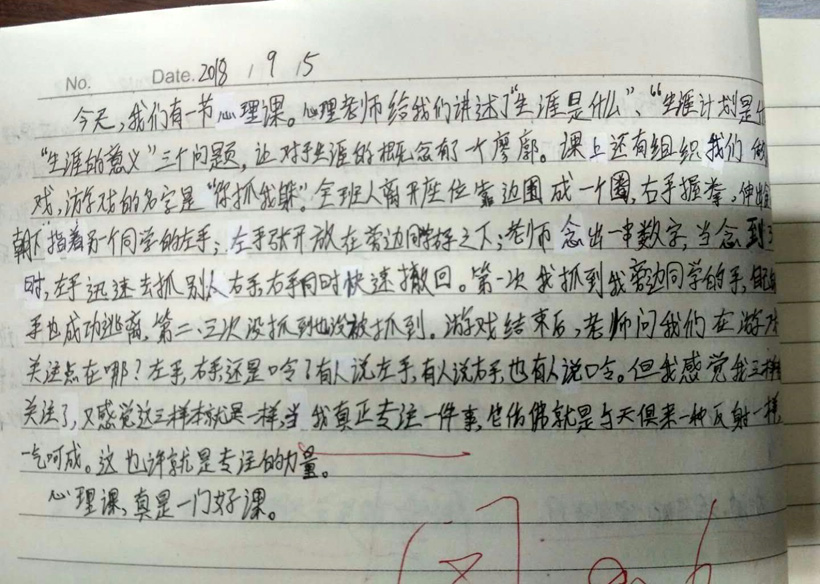 No.
Date. 2018 / 9 15
今天,我们有一节心理课。心理老师给我们讲述了"生涯是什么"、"生涯计划是什
"生涯的意义"三个问题,让对于生涯的概念有了个廖廓。课上还有组织我们做
戏,游戏的名字是"你抓我躲"。全班人离开座位靠边围成一个圈,右手握拳,伸出食
朝下指着另一个同学的左手;左手张开放在旁边同学手之下;老师念出一串数字,当念到3
时,左手迅速去抓别人右手,右手同时快速撤回。第一次我抓到我旁边同学的手,自己的
手也成功逃离,第二、三次没抓到也没被抓到。游戏结束后,老师问我们在游戏
关注点在哪?左手,右手还是口令?有人说左手,有人说右手,也有人说口令。但我感觉我三样都
关注了,又感觉这三样本就是一样,当我真正专注一件事,它仿佛就是与天俱来一种反射一样,
一气呵成。这也许就是专注的力量。
心理课,真是一门好课。